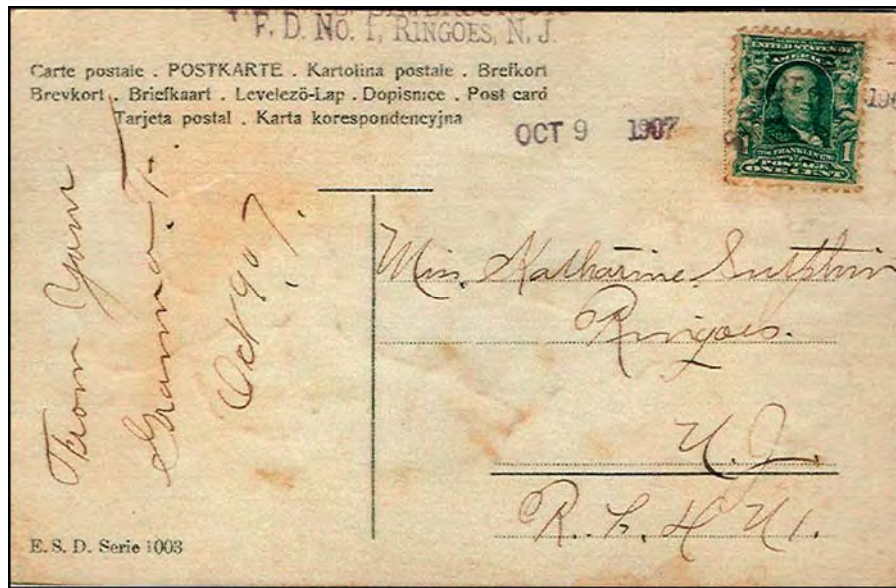 F. D. NO. 1, RINGOES, N. J.
Carte postale . POSTKARTE . Kartolina postale . Brefkort
Brevkort . Briefkaart . Levelezö-Lap . Dopisnice . Post card
Tarjeta postal . Karta korespondencyjna
OCT 9 1907
UNITED STATES OF
AMERICA
1 FRANKLIN 1
POSTAGE
ONE CENT
From Your
Gramma. T.
Oct 9 07.
Miss. Katharine Sutphin
Ringoes.
N. J.
E. S. D. Serie 1003